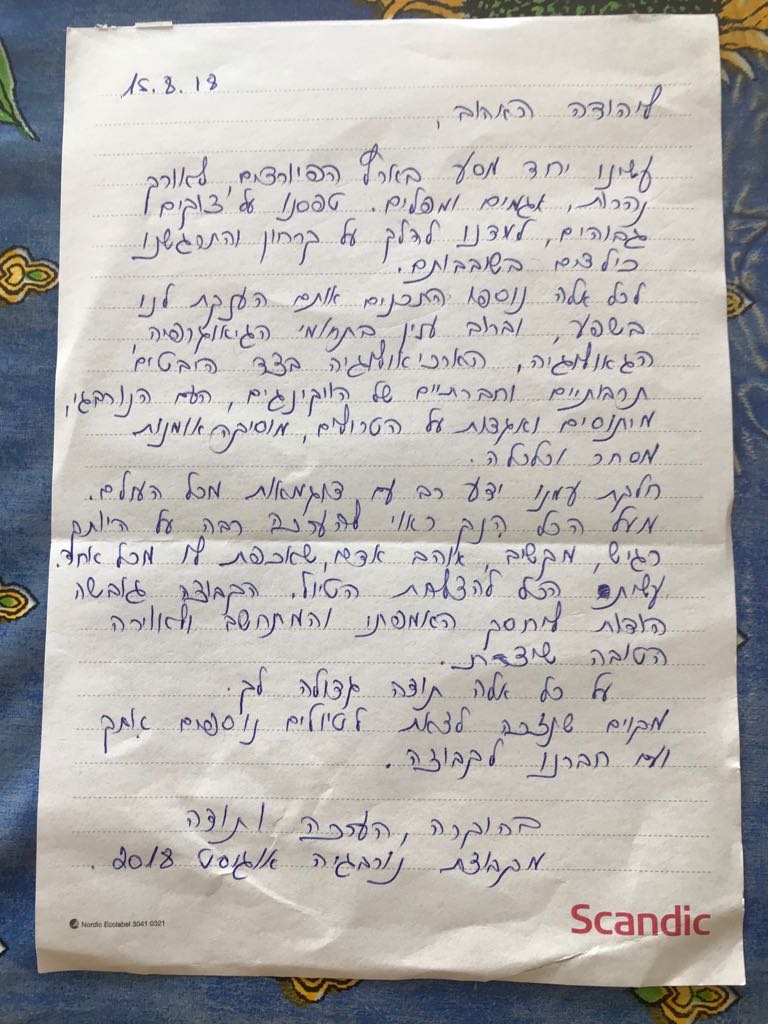 15.8.18
ליהודה האהוב,
עשינו יחד מסע בארץ הפיורדים, לאורך
נהרות, אגמים ומפלים. טפסנו על צוקים
גבוהים, למדנו להלך על קרחון והתרגשנו
כילדים בשובבותם.
לכל אלה נוספו התכנים אותם הענקת לנו
בשפע, וברוב ענין בתחומי הגיאוגרפיה,
הגאולוגיה, הארכיאולוגיה בצד היבטים
תרבותיים וחברתיים של הויקינגים, העם הנורבגי,
מיתוסים ואגדות על הטרולים, מוסיקה אומנות
מסחר וכלכלה.
חלקת עמנו ידע רב עם דוגמאות מכל העולם.
מעל הכל הנך ראוי להערכה רבה על היותך
רגיש, מקשיב, אוהב אדם, שאכפת לו מכל אחד.
עשית הכל להצלחת הטיול. הקבוצה גובשה
הודות ליחסך האמפתי והמתחשב ולאוירה
הטובה שיצרת.
על כל אלה תודה גדולה לך.
מקוים שנזכה לצאת לטיולים נוספים אתך
ועם חברנו לקבוצה.
בחוברה, הערכה ותודה
מקבוצת נורבגיה אוגוסט 2018.
Nordic Ecolabel 3041 0321
Scandic